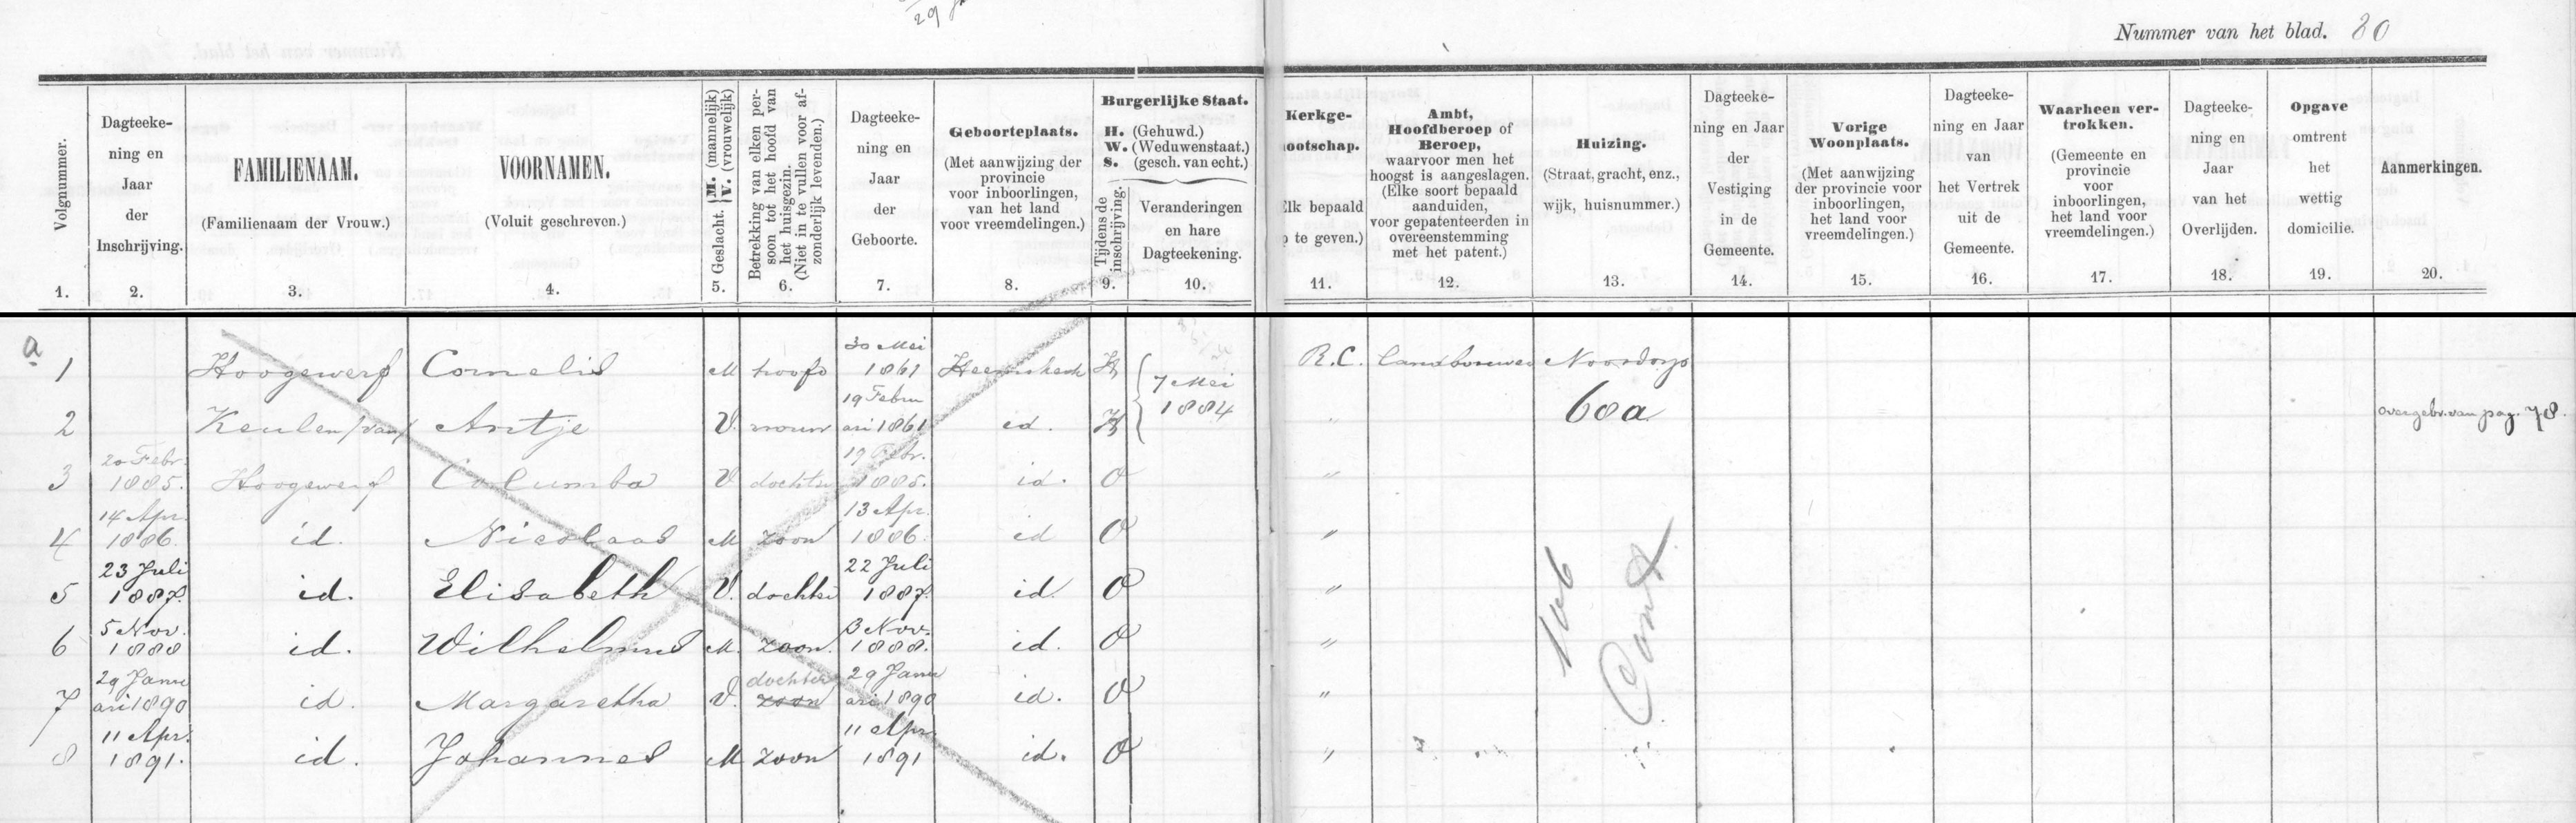 Nummer van het blad. 80
Volgnummer.
1.
Dagteeke-
ning en
Jaar
der
Inschrijving.
2.
FAMILIENAAM.
(Familienaam der Vrouw.)
3.
VOORNAMEN.
(Voluit geschreven.)
4.
Geslacht. M. (mannelijk) V. (vrouwelijk)
5.
Betrekking van elken per-
soon tot het hoofd van
het huisgezin.
(Niet in te vullen voor af-
zonderlijk levenden.)
6.
Dagteeke-
ning en
Jaar
der
Geboorte.
7.
Geboorteplaats.
(Met aanwijzing der
provincie
voor inboorlingen,
van het land
voor vreemdelingen.)
8.
Burgerlijke Staat.
H. (Gehuwd.)
W. (Weduwenstaat.)
S. (gesch. van echt.)
Tijdens de
inschrijving.
9.
Veranderingen
en hare
Dagteekening.
10.
Kerkge-
ootschap.
Elk bepaald
te geven.)
11.
Ambt,
Hoofdberoep of
Beroep,
waarvoor men het
hoogst is aangeslagen.
(Elke soort bepaald
aanduiden,
voor gepatenteerden in
overeenstemming
met het patent.)
12.
Huizing.
(Straat, gracht, enz.,
wijk, huisnummer.)
13.
Dagteeke-
ning en Jaar
der
Vestiging
in de
Gemeente.
14.
Vorige
Woonplaats.
(Met aanwijzing
der provincie voor
inboorlingen,
het land voor
vreemdelingen.)
15.
Dagteeke-
ning en Jaar
van
het Vertrek
uit de
Gemeente.
16.
Waarheen ver-
trokken.
(Gemeente en
provincie
voor
inboorlingen,
het land voor
vreemdelingen.)
17.
Dagteeke-
ning en
Jaar
van het
Overlijden.
18.
Opgave
omtrent
het
wettig
domicilie.
19.
Aanmerkingen.
20.
a
1 Hoogewerf Cornelis M hoofd 30 Mei 1861 Heemskerk H 7 Mei 1884 R.C. landbouwer Noorddorp
2 Keulen (van) Antje V. vrouw 19 Februari 1861 id. H " 60a overgebr. van pag. 78.
3 20 Febr. 1885. Hoogewerf Columba V dochter 19 Febr. 1885. id. O "
4 14 Apr. 1886. id. Nicolaas M zoon 13 Apr. 1886. id O "
5 23 Juli 1887. id. Elisabeth V. dochter 22 Juli 1887. id. O "
6 5 Nov. 1888 id. Wilhelmus M. zoon. 3 Nov. 1888. id. O "
7 29 Januari 1890 id. Margaretha V. dochter zoon 29 Januari 1890 id. O "
8 11 Apr. 1891. id. Johannes M zoon 11 Apr. 1891 id. O "